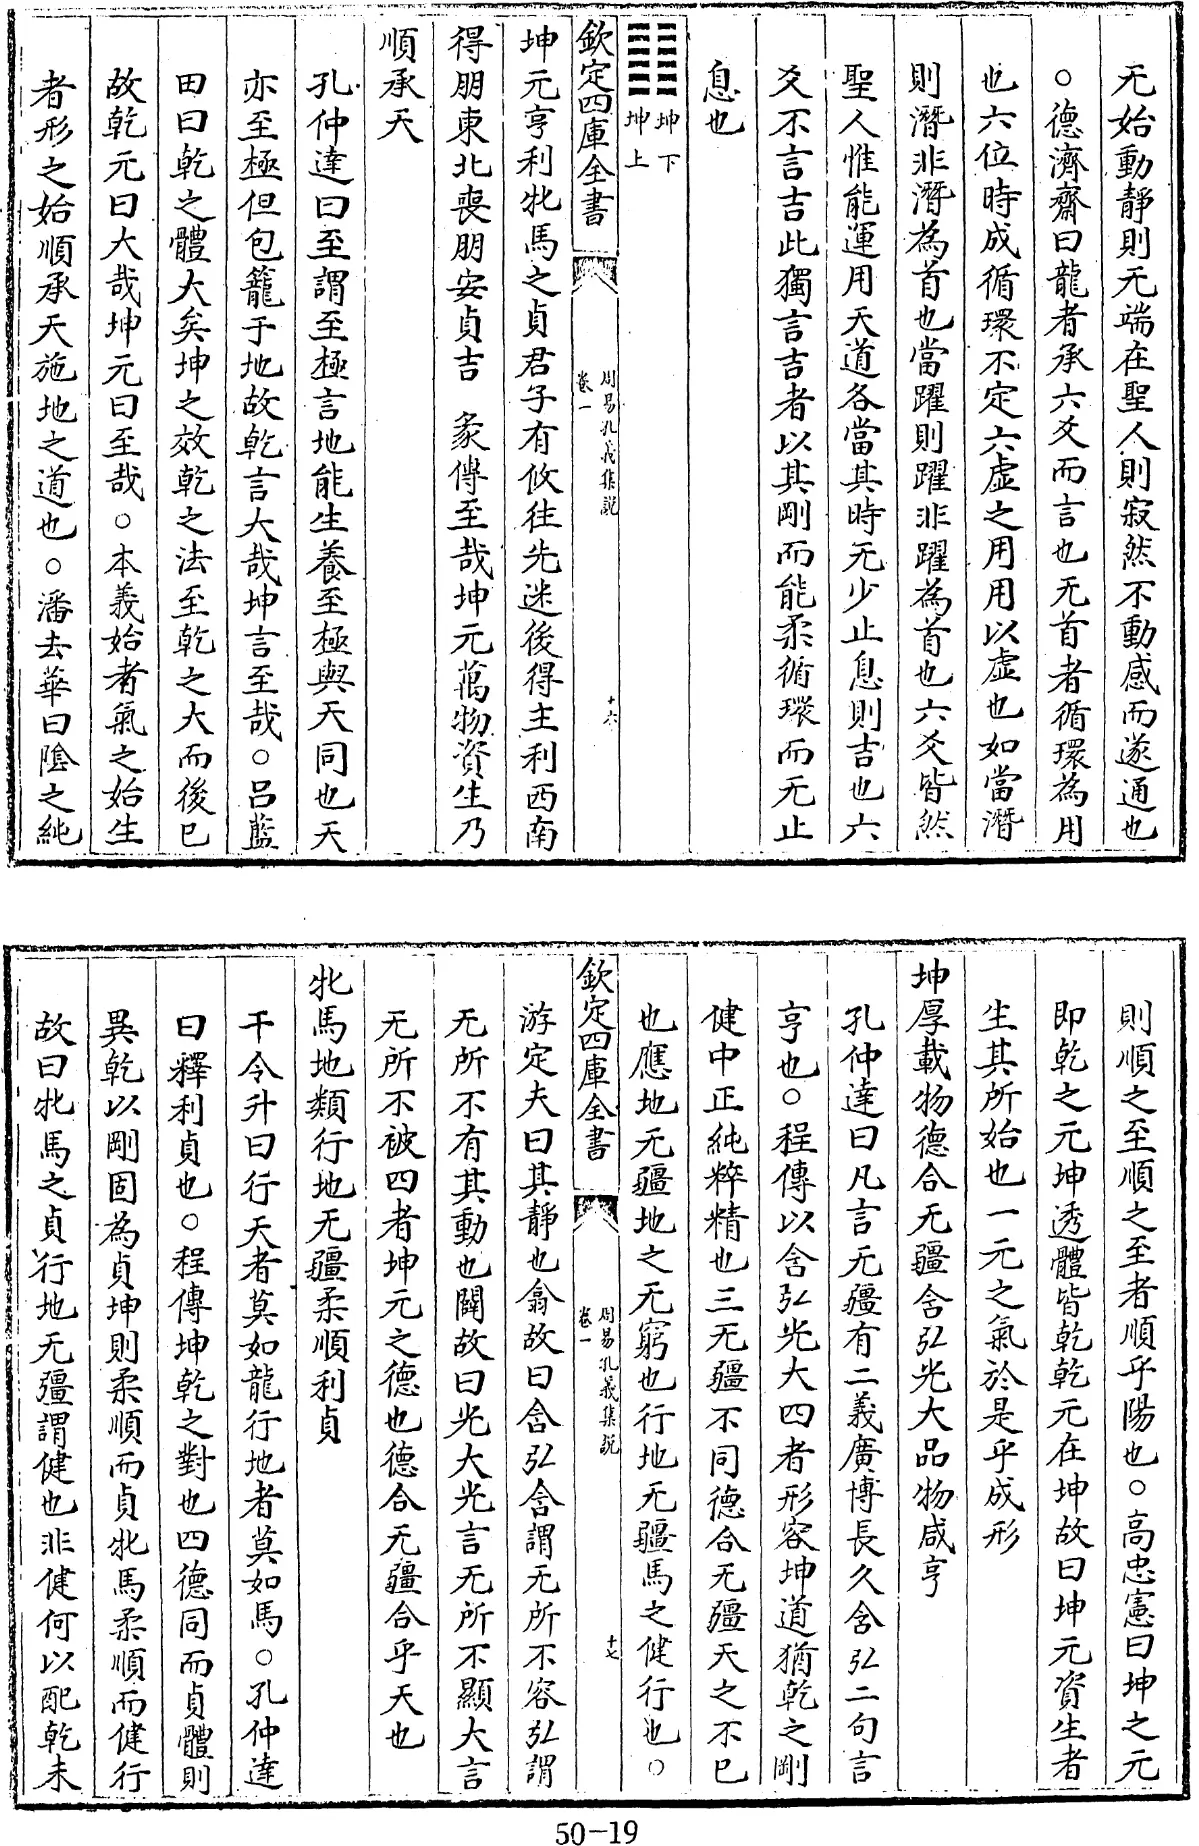 无始動靜則无端在聖人則寂然不動感而遂通也
○德濟齋曰龍者承六爻而言也无首者循環為用
也六位時成循環不定六虛之用用以虛也如當潛
則潛非潛為首也當躍則躍非躍為首也六爻皆然
聖人惟能運用天道各當其時无少止息則吉也六
爻不言吉此獨言吉者以其剛而能柔循環而无止
息也
䷁坤下坤上
欽定四庫全書
周易孔義集說
卷一
十六
坤元亨利牝馬之貞君子有攸往先迷後得主利西南
得朋東北喪朋安貞吉 彖傳至哉坤元萬物資生乃
順承天
孔仲達曰至謂至極言地能生養至極與天同也天
亦至極但包籠于地故乾言大哉坤言至哉○呂藍
田曰乾之體大矣坤之效乾之法至乾之大而後已
故乾元曰大哉坤元曰至哉○本義始者氣之始生
者形之始順承天施地之道也○潘去華曰陰之純
則順之至順之至者順乎陽也○高忠憲曰坤之元
即乾之元坤透體皆乾乾元在坤故曰坤元資生者
生其所始也一元之氣於是乎成形
坤厚載物德合无疆含弘光大品物咸亨
孔仲達曰凡言无疆有二義廣博長久含弘二句言
亨也○程傳以含弘光大四者形容坤道猶乾之剛
健中正純粹精也三无疆不同德合无疆天之不已
也應地无疆地之无窮也行地无疆馬之健行也○
欽定四庫全書
周易孔義集說
卷一
十七
游定夫曰其靜也翕故曰含弘含謂无所不容弘謂
无所不有其動也闢故曰光大光言无所不顯大言
无所不被四者坤元之德也德合无疆合乎天也
牝馬地類行地无疆柔順利貞
干令升曰行天者莫如龍行地者莫如馬○孔仲達
曰釋利貞也○程傳坤乾之對也四德同而貞體則
異乾以剛固為貞坤則柔順而貞牝馬柔順而健行
故曰牝馬之貞行地无疆謂健也非健何以配乾未
50-19